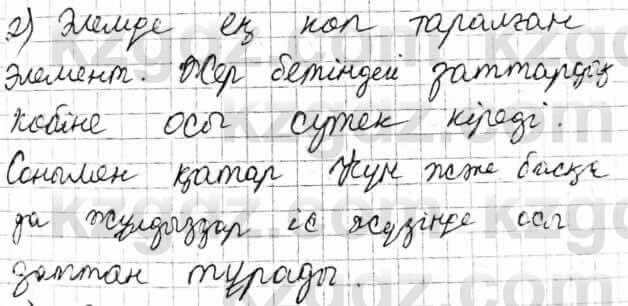 2) Әлемде ең көп таралған
элемент. Жер бетіндей заттардың
көбіне осы сутек кіреді.
Сонымен қатар Күн және басқа
да жұлдыздар іс жүзінде осы
заттан тұрады.